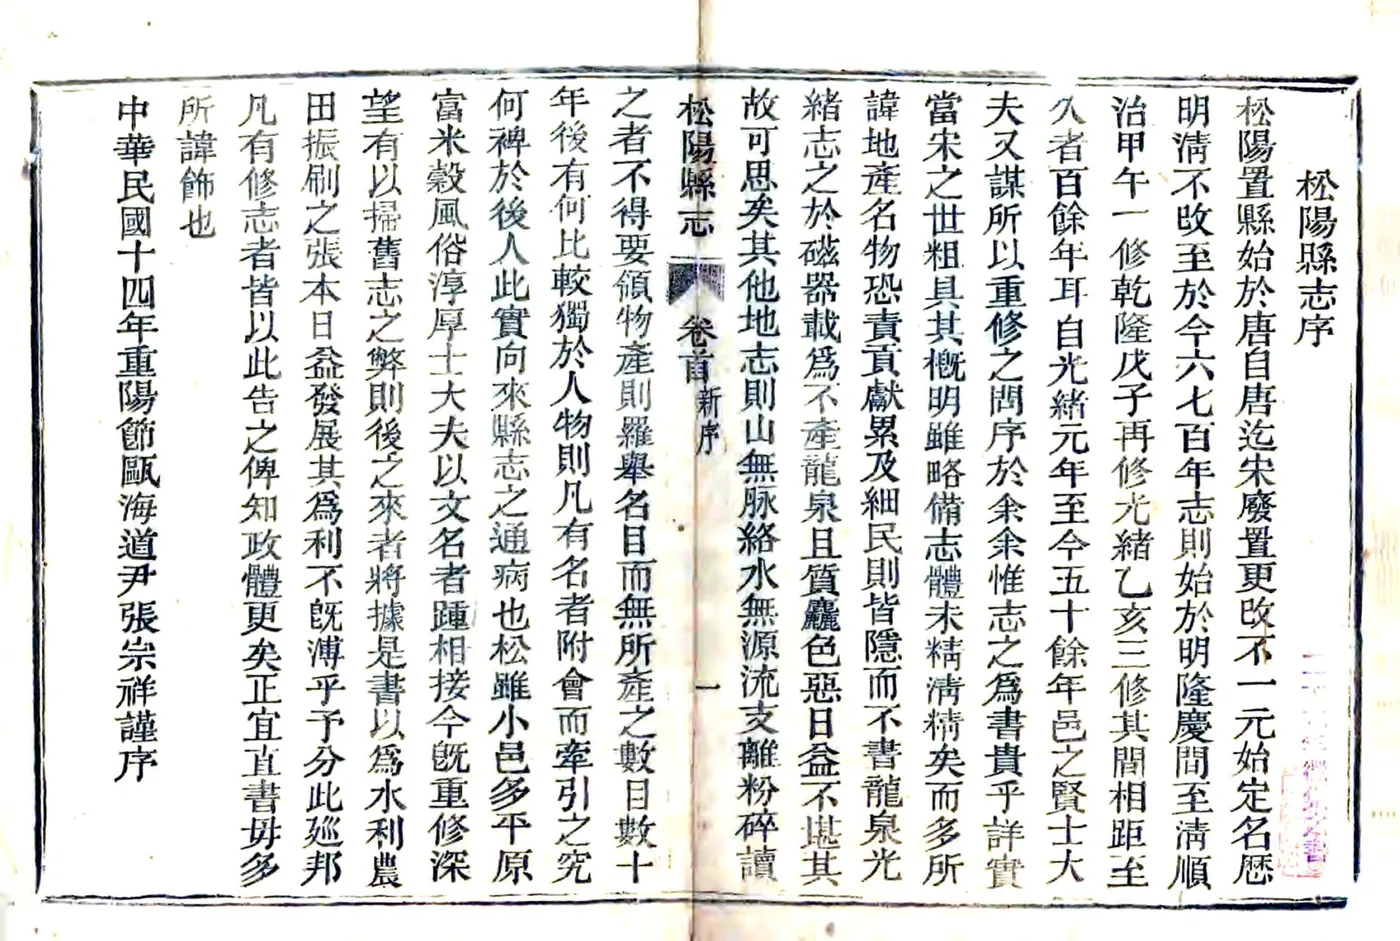 松陽縣志序
松陽置縣始於唐自唐迄宋廢置更改不一元始定名歷
明淸不改至於今六七百年志則始於明隆慶間至淸順
治甲午一修乾隆戊子再修光緒乙亥三修其間相距至
久者百餘年耳自光緒元年至今五十餘年邑之賢士大
夫又謀所以重修之問序於余余惟志之爲書貴乎詳實
當宋之世粗具其概明雖略備志體未精淸精矣而多所
諱地產名物恐責貢獻累及細民則皆隱而不書龍泉光
緒志之於磁器載爲不產龍泉且質麤色惡日益不堪其
故可思矣其他地志則山無脉絡水無源流支離粉碎讀
松陽縣志
卷首
新序
一
之者不得要領物產則羅舉名目而無所產之數目數十
年後有何比較獨於人物則凡有名者附會而牽引之究
何裨於後人此實向來縣志之通病也松雖小邑多平原
富米穀風俗淳厚士大夫以文名者踵相接今旣重修深
望有以掃舊志之弊則後之來者將據是書以爲水利農
田振刷之張本日益發展其爲利不旣溥乎予分此廵邦
凡有修志者皆以此告之俾知政體更矣正宜直書毋多
所諱飾也
中華民國十四年重陽節甌海道尹張宗祥謹序